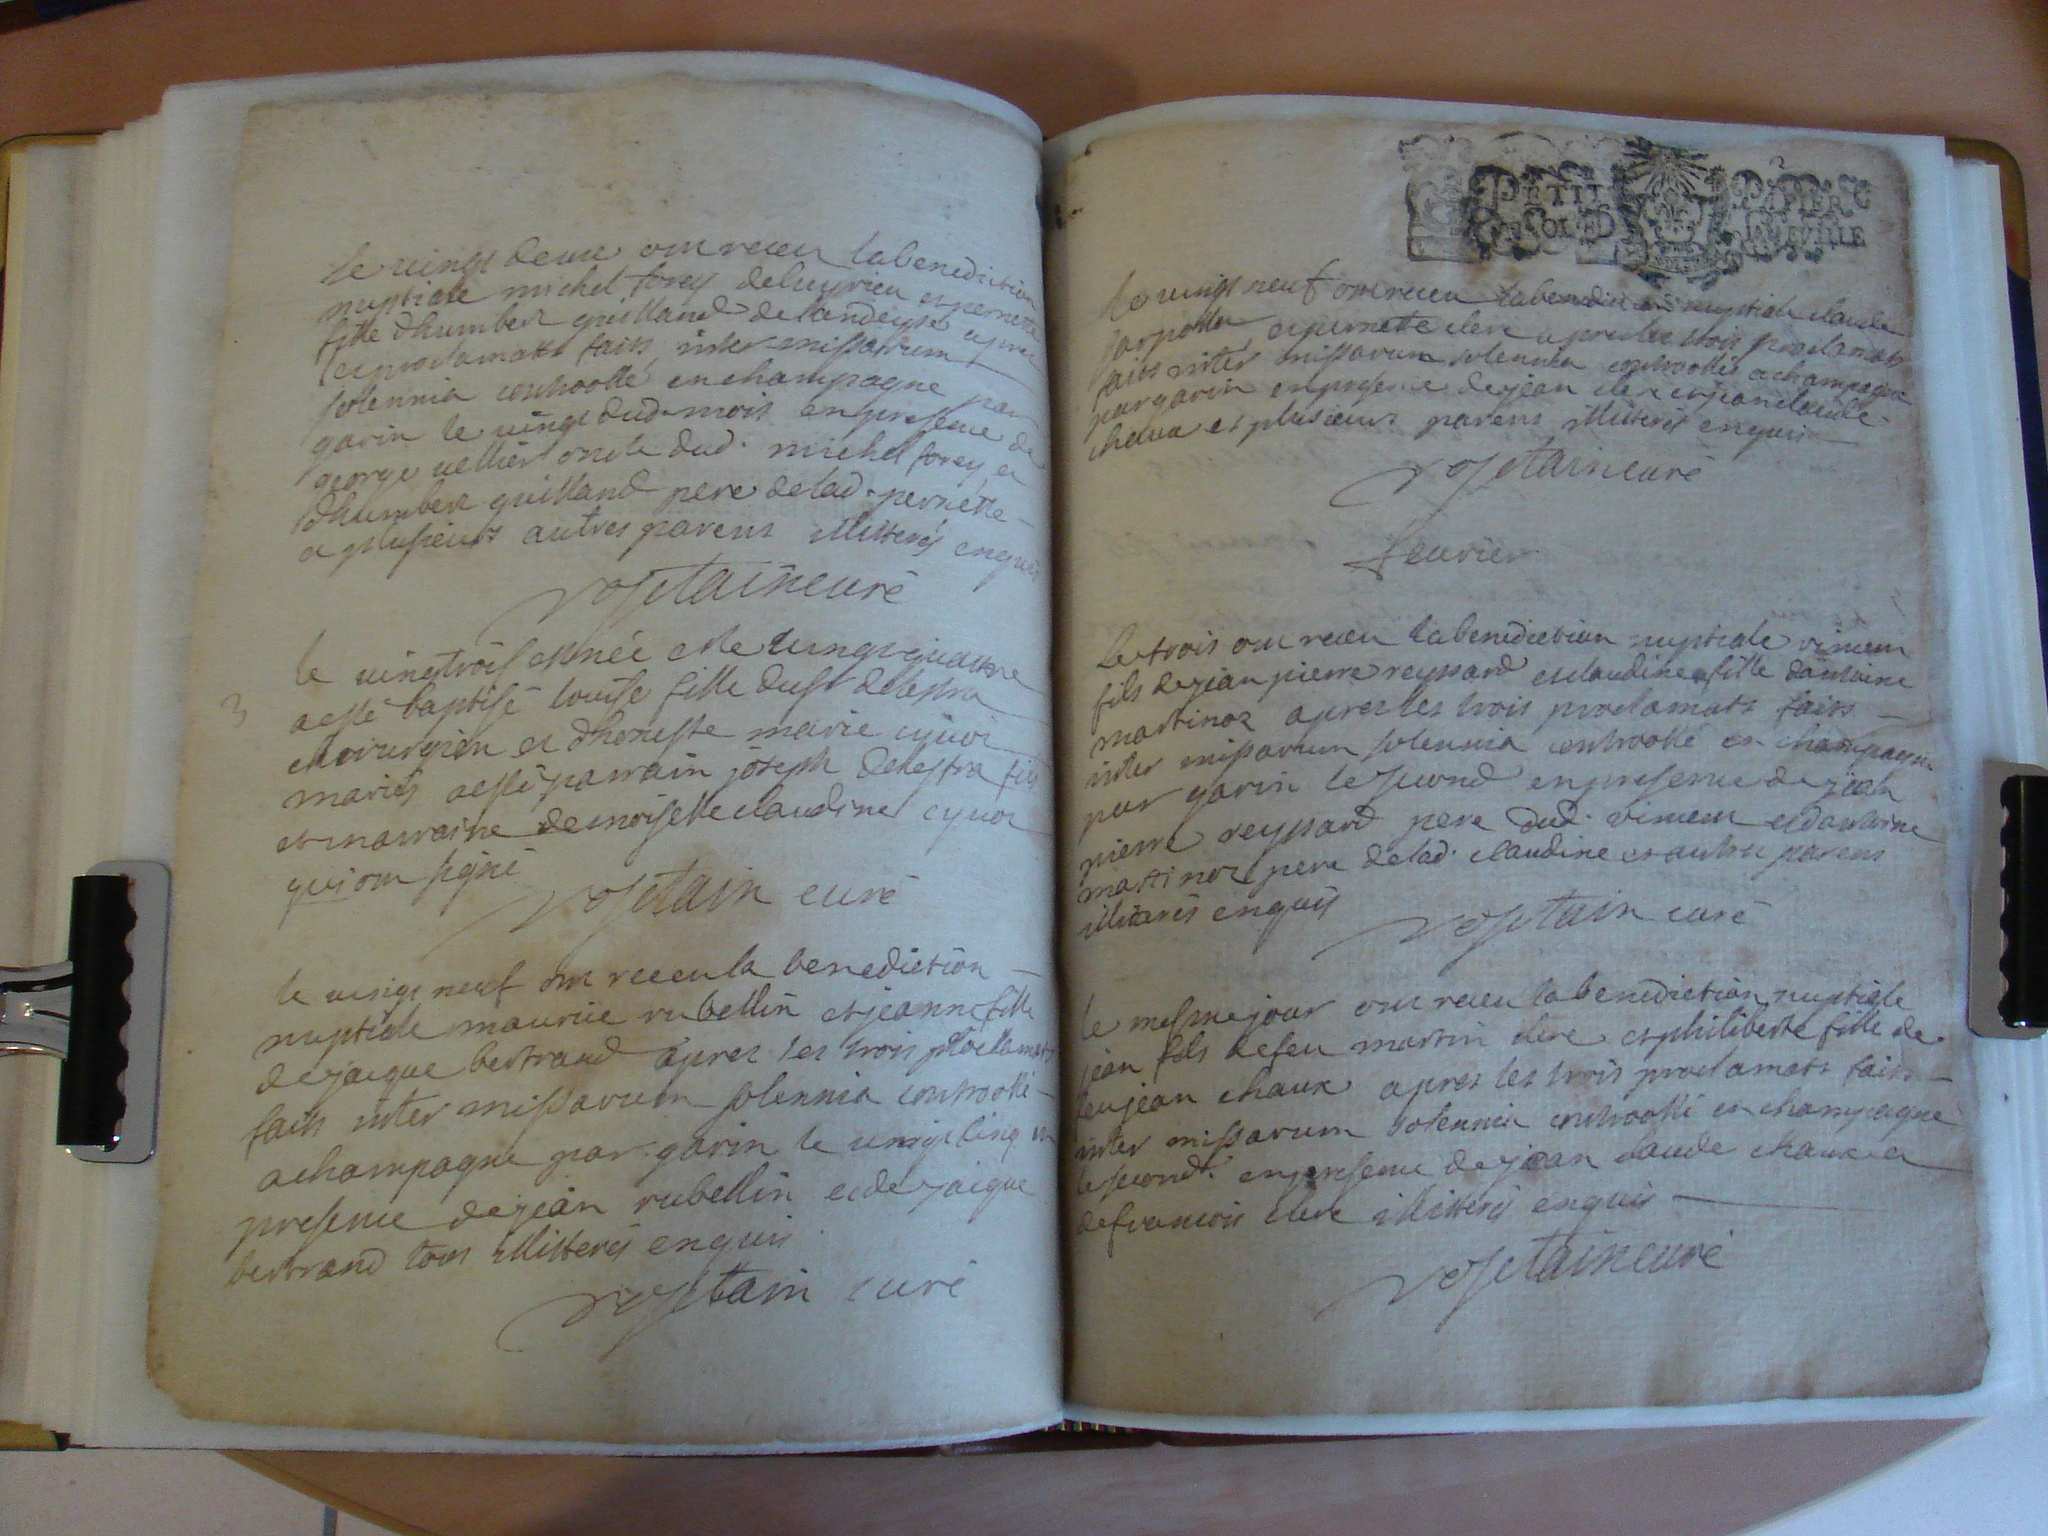 le vingt deux ont receu la benediction
nuptiale michel forey de luyrieu et pernette
fille dhumbert guilland de landeyse apres
les proclamats faits inter missarum
solennia controollé en champagne par
garin le vingt dud. mois en presence de
george vellier oncle dud. michel forey et
dhumbert guilland pere de lad. pernette
et plusieurs autres parens illitterés enquis
Vosgetain curé
3
le vingtrois est née et le vingt quatre
a esté baptisé louise fille du sr delestra
chirurgien et dhoneste marie cynoz
mariés a esté parrain joseph delestra fils
et marraine demoiselle claudine cynoz
qui ont signé
curé
le vingt neuf ont receu la benediction
nuptiale maurice rubellin et jeanne fille
de jacque bertrand apres les trois proclamats
faits inter missarum solennia controollé
a champagne par garin le vingt cinq en
presence de jean rubellin et de jacque
bertrand tous illitterés enquis
curé
2
PETIT PAPIER
SOL
le vingt neuf ont receu la benediction nuptiale claude
et pernette clerc apres les trois proclamats
faits inter missarum solennia controollé a champagne
par garin en presence de jean clerc et jean claude
chaux et plusieurs parens illitterés enquis
curé
feurier
Le trois ont receu la benediction nuptiale vincent
fils de jean pierre reyssard et claudine fille dantoine
martinoz apres les trois proclamats faits
inter missarum solennia controollé en champagne
par garin le second en presence de jean
pierre reyssard pere dud. vincent et dantoine
martinoz pere de lad. claudine et autres parens
illiterés enquis
curé
le mesme jour ont receu la benediction nuptiale
jean fils de feu martin clerc et philiberte fille de
feu jean chaux apres les trois proclamats faits
inter missarum solennia controollé en champagne
le second. en presence de jean claude chaux et
de francois clerc illitterés enquis
curé